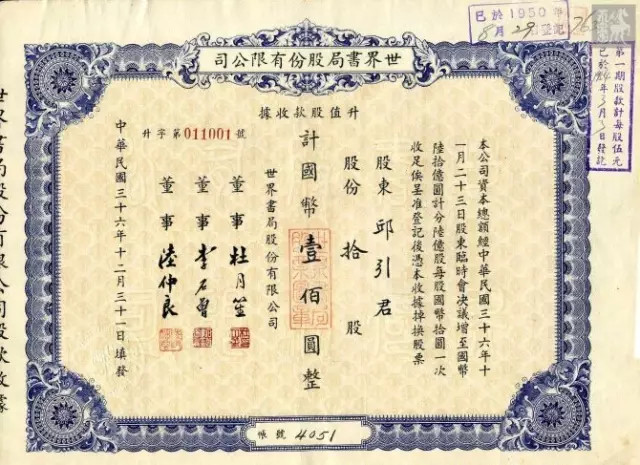 已於1950年
8月29登記
第一期股款計每股伍元
世界書局股份有限公司
升值股款收據
升字第011001號
本公司資本總額經中華民國三十六年十
一月二十三日股東臨時會決議增至國幣
陸拾億圓計分陸億股每股國幣拾圓一次
收足俟呈准登記後憑本收據掉換股票
股東 邱引君
股份 拾 股
計國幣壹佰圓整
世界書局股份有限公司
董事 杜月笙
董事 李石曾
董事 陸仲良
中華民國三十六年十二月三十一日填發
帳號 4051
世界書局股份有限公司股款收據